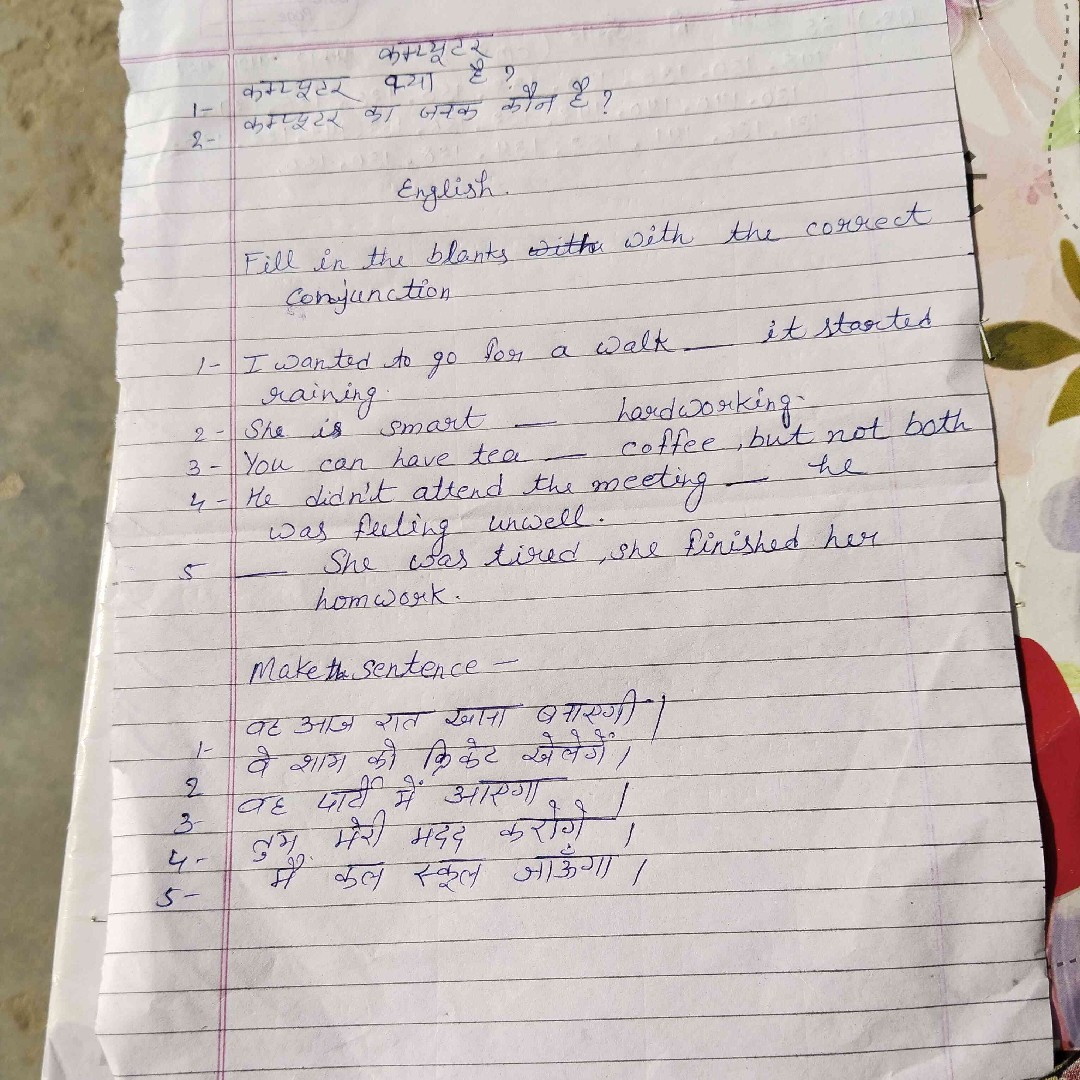 कम्प्यूटर
1- कम्प्यूटर क्या है ?
2- कम्प्यूटर का जनक कौन है ?
English.
Fill in the blanks with the correct
conjunction
1- I wanted to go for a walk __ it started
raining.
2- She is smart __ hardworking.
3- You can have tea __ coffee, but not both
4- He didn't attend the meeting __ he
was feeling unwell.
5 __ She was tired, she finished her
homwork.
Make the sentence –
1- वह आज रात खाना बनाएगी।
2 वे शाम को क्रिकेट खेलेगें।
3- वह पार्टी में आएगा।
4- तुम मेरी मदद करोगे।
5- मैं कल स्कूल जाऊँगा।